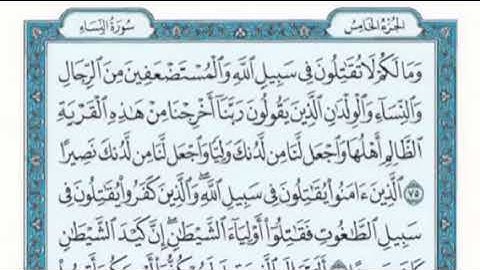 الجزء الخامس
سورة النساء
وَمَا لَكُمْ لَا تُقَٰتِلُونَ فِى سَبِيلِ ٱللَّهِ وَٱلْمُسْتَضْعَفِينَ مِنَ ٱلرِّجَالِ
وَٱلنِّسَآءِ وَٱلْوِلْدَٰنِ ٱلَّذِينَ يَقُولُونَ رَبَّنَآ أَخْرِجْنَا مِنْ هَٰذِهِ ٱلْقَرْيَةِ
ٱلظَّالِمِ أَهْلُهَا وَٱجْعَل لَّنَا مِن لَّدُنكَ وَلِيًّا وَٱجْعَل لَّنَا مِن لَّدُنكَ نَصِيرًا
٧٥ ٱلَّذِينَ ءَامَنُوا۟ يُقَٰتِلُونَ فِى سَبِيلِ ٱللَّهِ ۖ وَٱلَّذِينَ كَفَرُوا۟ يُقَٰتِلُونَ فِى
سَبِيلِ ٱلطَّٰغُوتِ فَقَٰتِلُوٓا۟ أَوْلِيَآءَ ٱلشَّيْطَٰنِ ۖ إِنَّ كَيْدَ ٱلشَّيْطَٰنِ